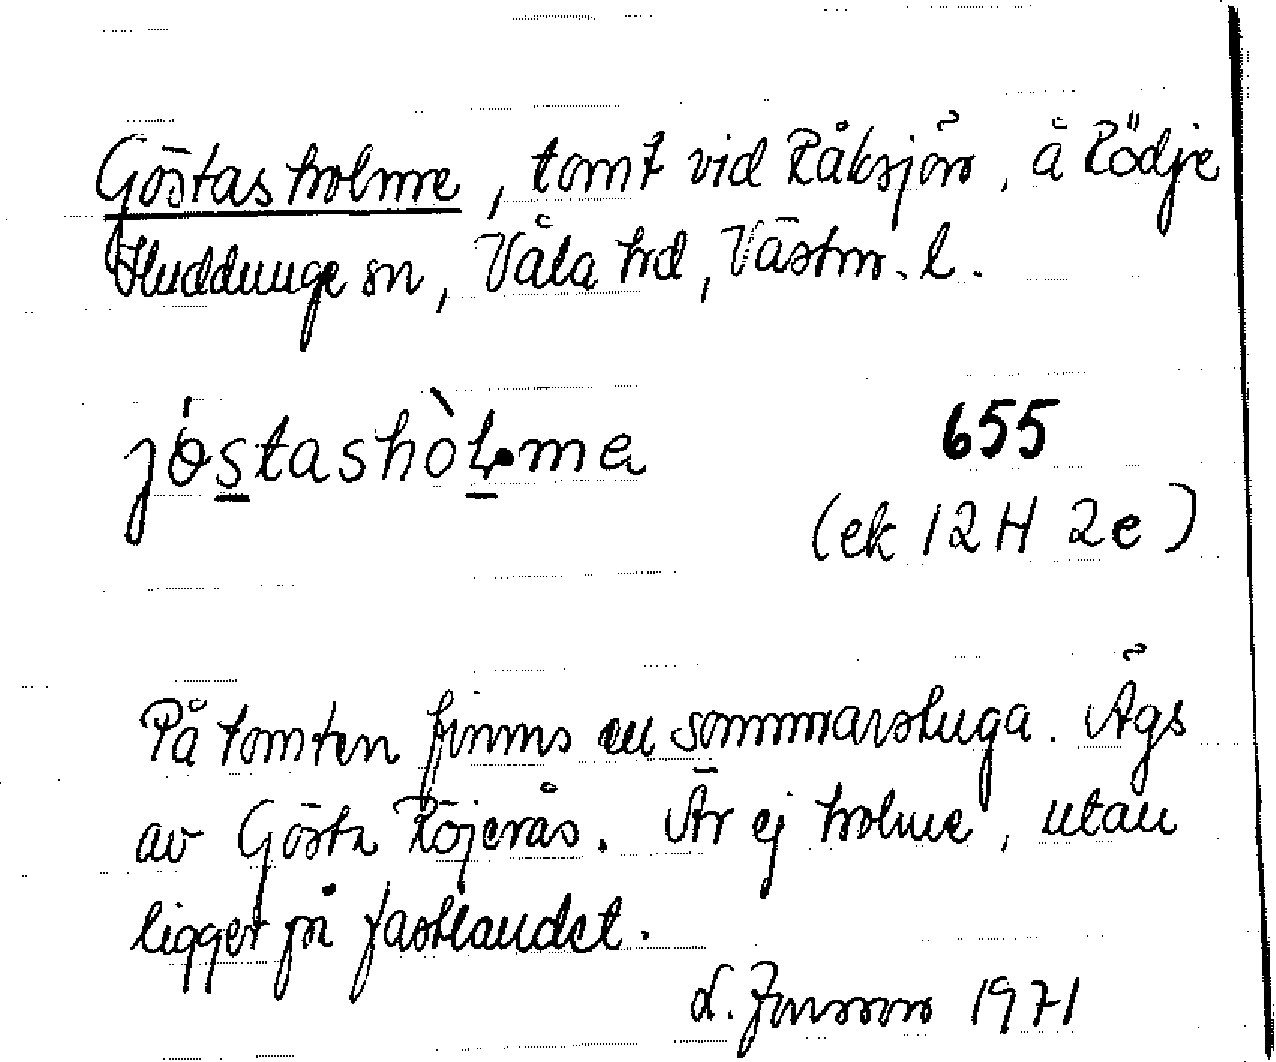 Göstasholme, tomt vid Råksjön, å Rödje
Huddunge sn, Våla hd, Västm. l.
jöstashòlme
655
(ek 12 H 2e)
På tomten finns en sommarstuga. Ägs
av Gösta Röjerås. Är ej holme, utan
ligger på fastlandet.
L. Jonsson 1971